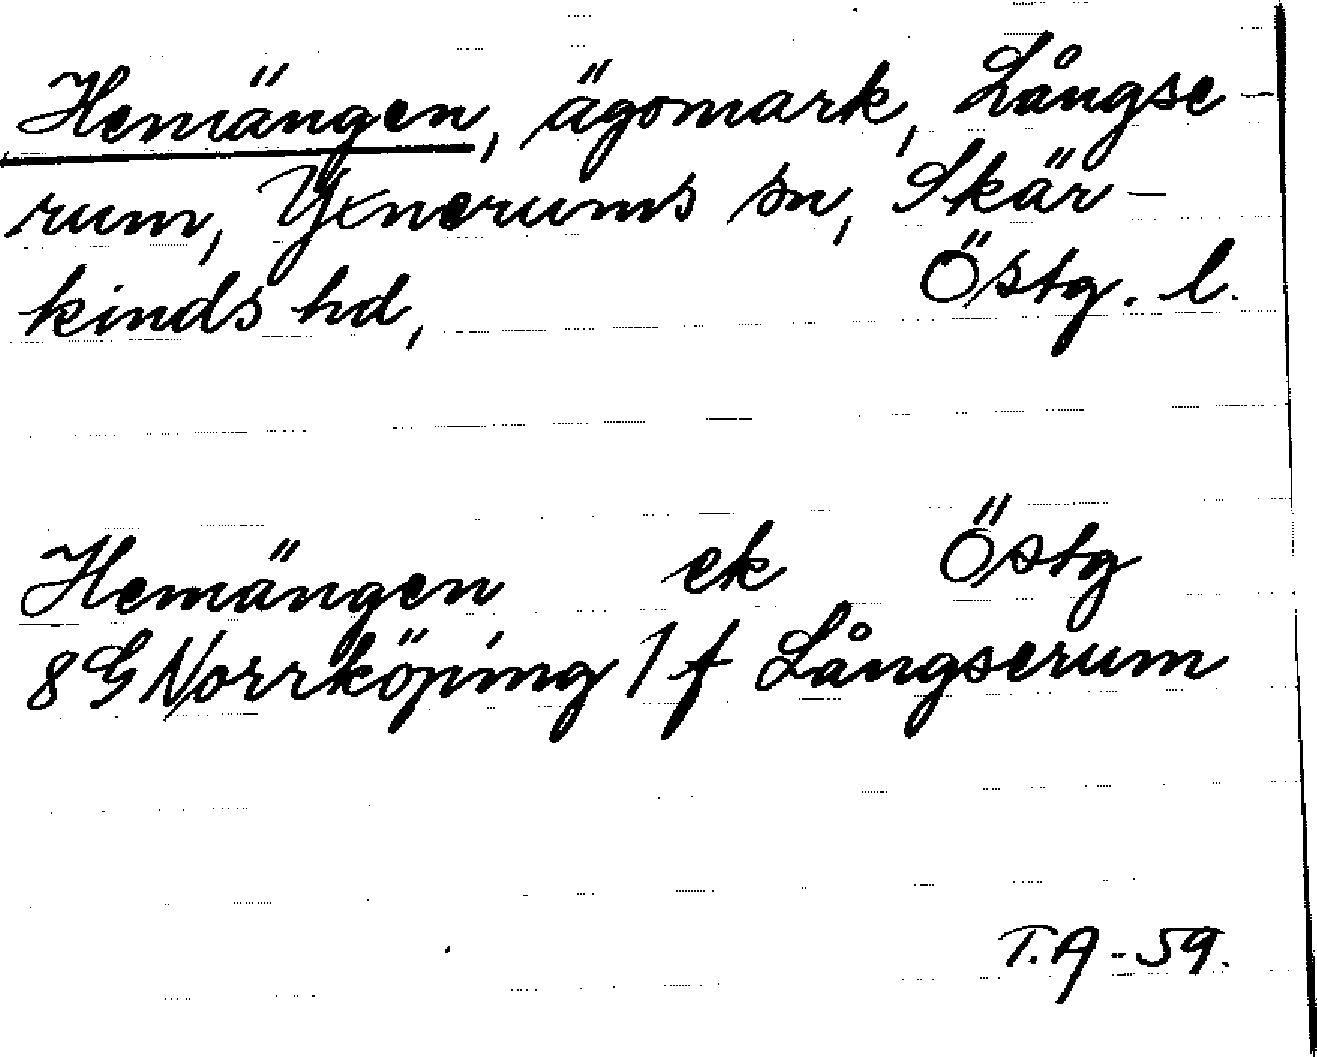 Hemängen, ägomark, Långse-
rum, Yxnerums sn, Skär-
kinds hd, Östg. l.
Hemängen ek Östg
8G Norrköping 1f Långserum
T.A-59.